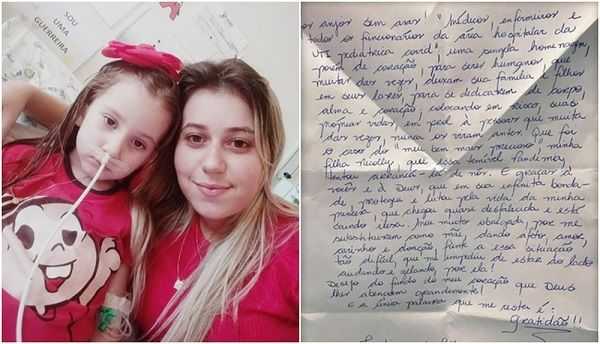 SOU UMA
GUERREIRA
os anjos sem asas "Médicos, enfermeiros e
todos os funcionários da área hospitalar da
UTI pediátrica covid" uma simples homenagem,
porém de coração, para seres humanos, que
muitas das vezes, deixam sua família e filhos
em seus lares, para se dedicarem de corpo,
alma e coração, colocando em risco, suas
próprias vidas, em prol à pessoas que muita
das vezes, nunca os viram antes. Que foi
o caso do "meu bem mais precioso" minha
filha Nicolly, que essa temível Pandemia,
tentou arrancá-la de nós. E graças à
vocês e à Deus, que em sua infinita bonda-
de, protegeu e lutou pela vida da minha
princesa, que chegou quase desfalecida e está
saindo ilesa. Meu muito obrigada, por me
substituirem como mãe, dando afeto, amor,
carinho e doação frente a essa situação
tão difícil, que me impediu de estar ao lado
cuidando e zelando por ela!
Desejo do fundo do meu coração que Deus
lhes abençoem grandemente!
E a única palavra que me resta é:
Gratidão!!